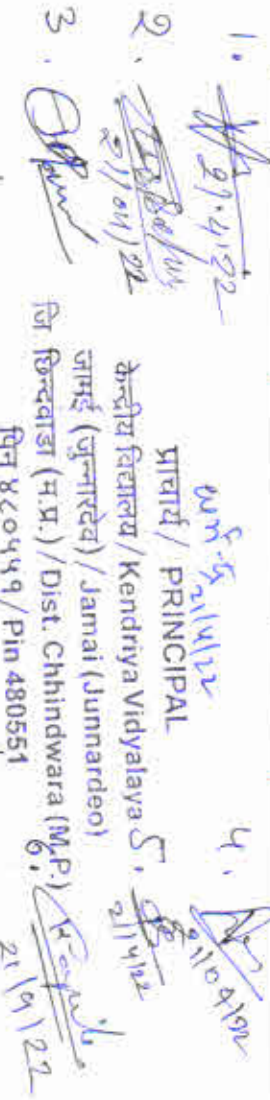 1. 21.4.22
2. 21/04/22
3.
21/4/22
प्राचार्य / PRINCIPAL
केन्द्रीय विद्यालय / Kendriya Vidyalaya
जामई (जुन्नारदेव) / Jamai (Junnardeo)
जि छिन्दवाडा (म.प्र.) / Dist. Chhindwara (M.P.)
पिन ४८०५५१ / Pin 480551
4. 21/04/22
5. 21/4/22
6. 21/4/22